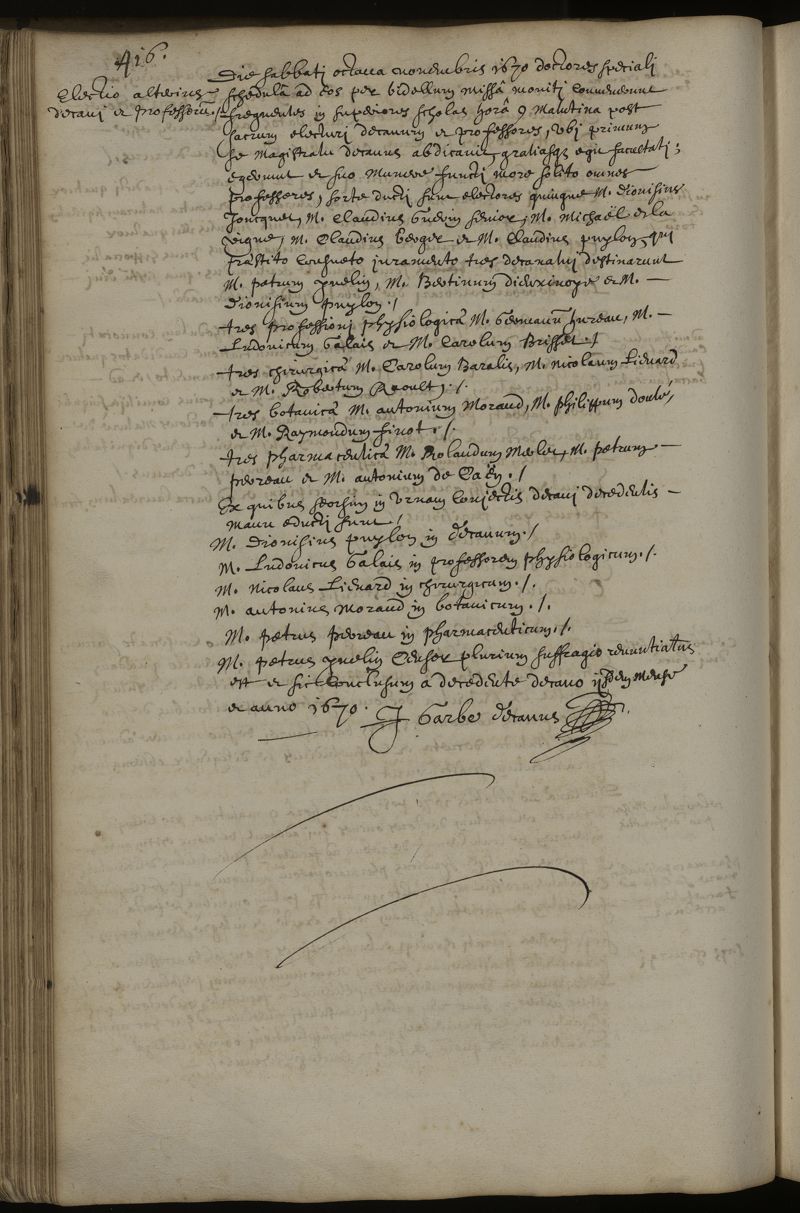 416.
Electio alterius
decani et professorū ./.
Die sabbati octava novembris 1670 doctores speciali
schedulâ ad eos per bidellum missâ moniti convenerunt
frequentes in superiores scholas horâ 9 matutina post
sacrum electuri decanum et professores, ubi primum
se magistratu decanus abdicavit, gratiasq; egit facultati;
egerunt et suo munere functi more solito omnes
professores, sorte ducti sunt electores quinque M. Dionisius
Joncquet, M. Claudius Guerin senior, M. Michaël de la
vigne, M. Claudius berger et M. Claudius puylon, qui
præstito consueto juramento tres decanatui destinarunt
M. petrum yvelin, M. Bertinum dieuxivoye et M. —
Dionisium puylon ./
tres professioni physiologicæ M. Germanū hureau, M. —
Ludovicum Galais et M. Carolum Brisset ./
tres chirurgicæ M. Carolum Baralis, M. nicolaum Lienard
et M. Robertum Raoult ./.
tres botanicæ M. antonium Morand, M. philippum doulé,
et M. Raymondum finot ./.
tres pharmaceuticæ M. Rolandum Merlet, M. petrum —
pereau et M. antonium de Caën ./
Ex quibus seorsim in urnam conjectis decani decedentis —
manu educti sunt /
M. Dionisius puylon in decanum ./
M. Ludovicus Galais in professorem physiologicum ./.
M. nicolaus Lienard in chirurgicum ./.
M. antonius morand in botanicum ./.
M. petrus pereau in pharmaceuticum ./.
M. petrus yvelin Censor plurium suffragio renuntiatus
est et sic conclusum a decedente decano ijsdem mense
et anno 1670. J Garbe decanus